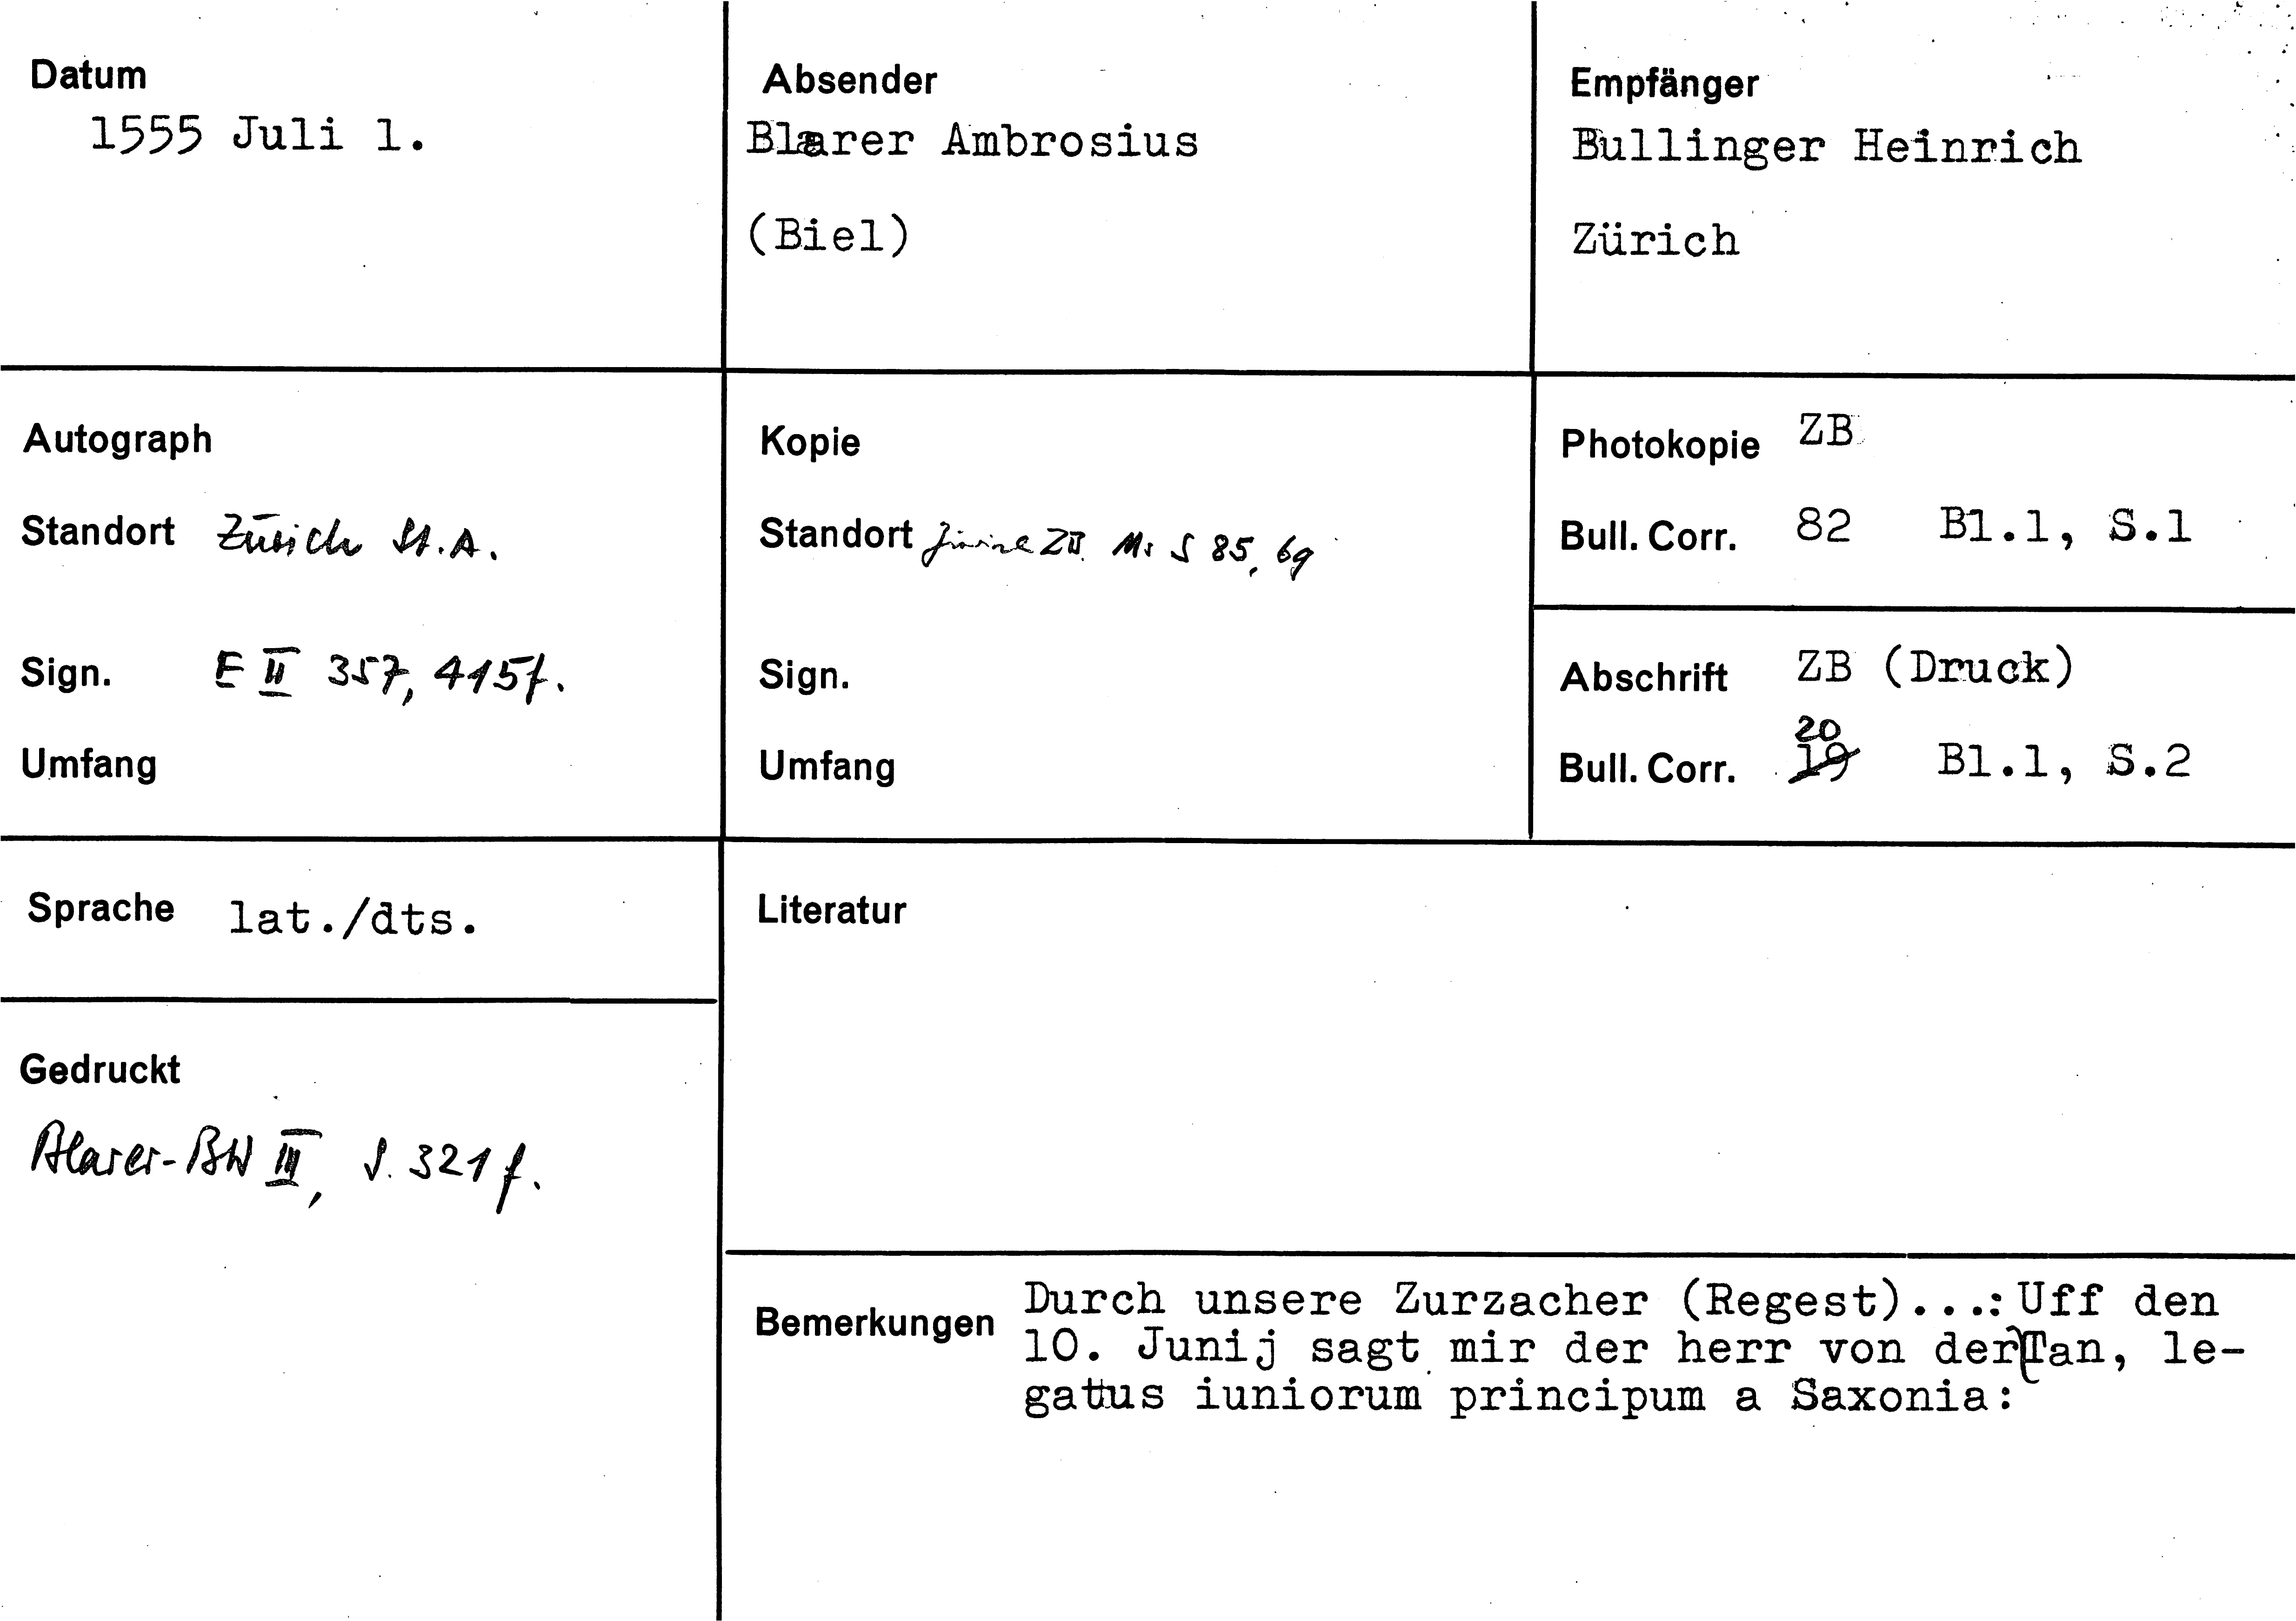 Datum
1555 Juli 1.
Absender
Blarer Ambrosius
(Biel)
Empfänger
Bullinger Heinrich
Zürich
Autograph
Standort Zürich St.A.
Sign. E II 357, 415f.
Umfang
Kopie
Standort Zürich ZB. Ms S 85, 69
Sign.
Umfang
Photokopie ZB
Bull. Corr. 82 Bl.1, S.1
Abschrift ZB (Druck)
20
Bull. Corr. 19 Bl.1, S.2
Sprache lat./dts.
Gedruckt
Blarer-BW III, S. 321 f.
Literatur
Bemerkungen Durch unsere Zurzacher (Regest)...: Uff den
10. Junij sagt mir der herr von der Tan, le-
gatus iuniorum principum a Saxonia: